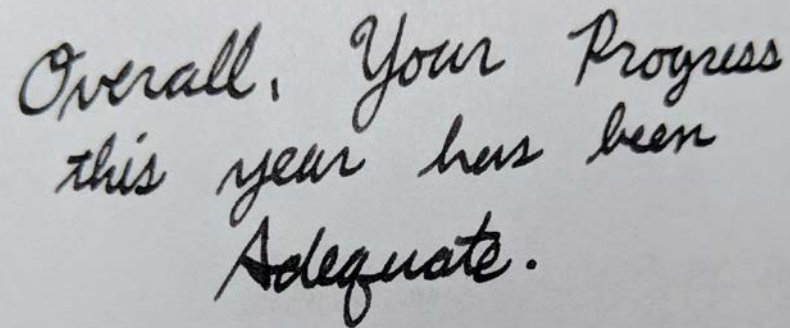 Overall, Your Progress
this year has been
Adequate.